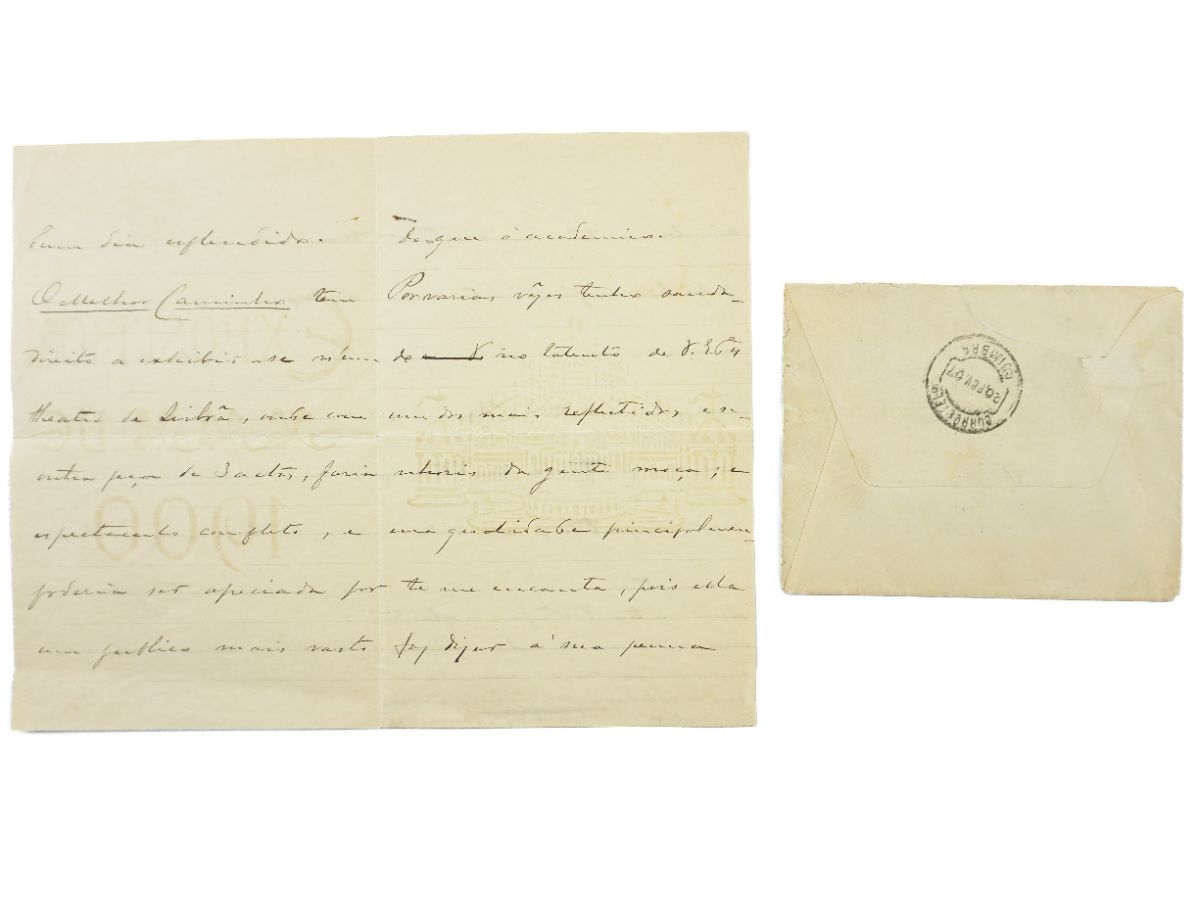 n'um dia esplendido.
O Melhor Caminho tem
direito a exhibir-se n'um
theatro de Lisbôa, onde com
outra peça de 3 actos, faria
espectaculo completo, e
poderia ser apeciada por
um publico mais vasto
do que o academico.
Por varias vêzes tenho sauda-
do no talento de V. Exª
um dos mais reflectidos, e se-
nhoris da gente moça; e
uma qualidade principalmen-
te me encanta, pois ella
faz dizer á sua penna
EXPOSITION
1900
CORREIO E TELEG
20 FEV. 07
COIMBRA